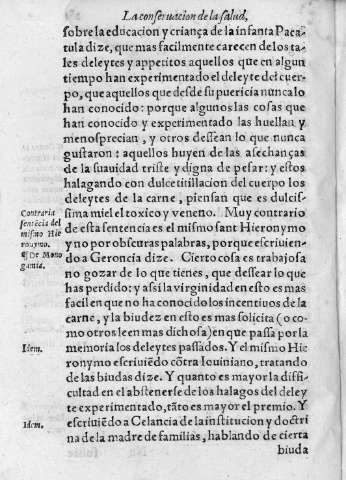 La conseruacion de la salud,
sobre la educacion y criança de la infanta Paca-
tula dize, que mas facilmente carecen de los ta-
les deleytes y appetitos aquellos que en algun
tiempo han experimentado el deleyte del cuer-
po, que aquellos que desde su puericia nunca lo
han conocido: porque algunos las cosas que
han conocido y experimentado las huellan y
menosprecian, y otros dessean lo que nunca
gustaron: aquellos huyen de las asechanças
de la suauidad triste y digna de pesar: y estos
halagando con dulce titillacion del cuerpo los
deleytes de la carne, piensan que es dulcis-
sima miel el toxico y veneno. Muy contrario
de esta sentencia es el mismo sant Hieronymo
y no por obscuras palabras, porque escriuien-
do a Geroncia dize. Cierto cosa es trabajosa
no gozar de lo que tienes, que dessear lo que
has perdido: y assi la virginidad en esto es mas
facil en que no ha conocido los incentiuos de la
carne, y la biudez en esto es mas solicita (o co-
mo otros leen mas dichosa) en que passa por la
memoria los deleytes passados. Y el mismo Hie
ronymo escriuiẽdo cõtra Iouiniano, tratando
de las biudas dize. Y quanto es mayor la diffi-
cultad en el abstenerse de los halagos del deley
te experimentado, tãto es mayor el premio. Y
escriuiẽdo a Celancia de la institucion y doctri
na de la madre de familias, hablando de cierta
biuda
Contraria
sentẽcia del
mismo Hie
ronymo.
¶De Mono
gamia.
Idem.
Idem.